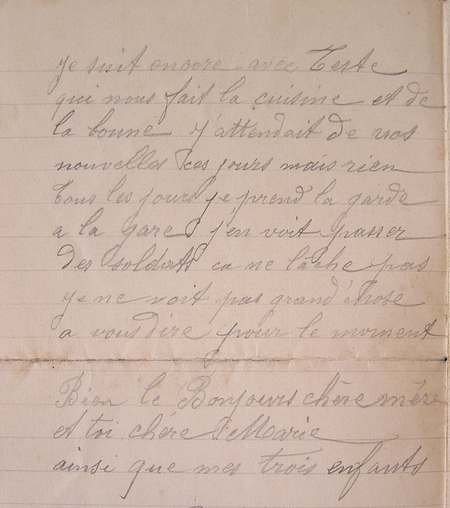 je suit encore avec Teste
qui nous fait la cuisine et de
la bonne j'attendait de vos
nouvelles ces jours mais rien
tous les jours je prend la garde
a la gare j'en voit passer
des soldats ca ne lâche pas
je ne voit pas grand chose
a vous dire pour le moment
Bien le Bonjours chère mère
et toi chère Marie
ainsi que mes trois enfants